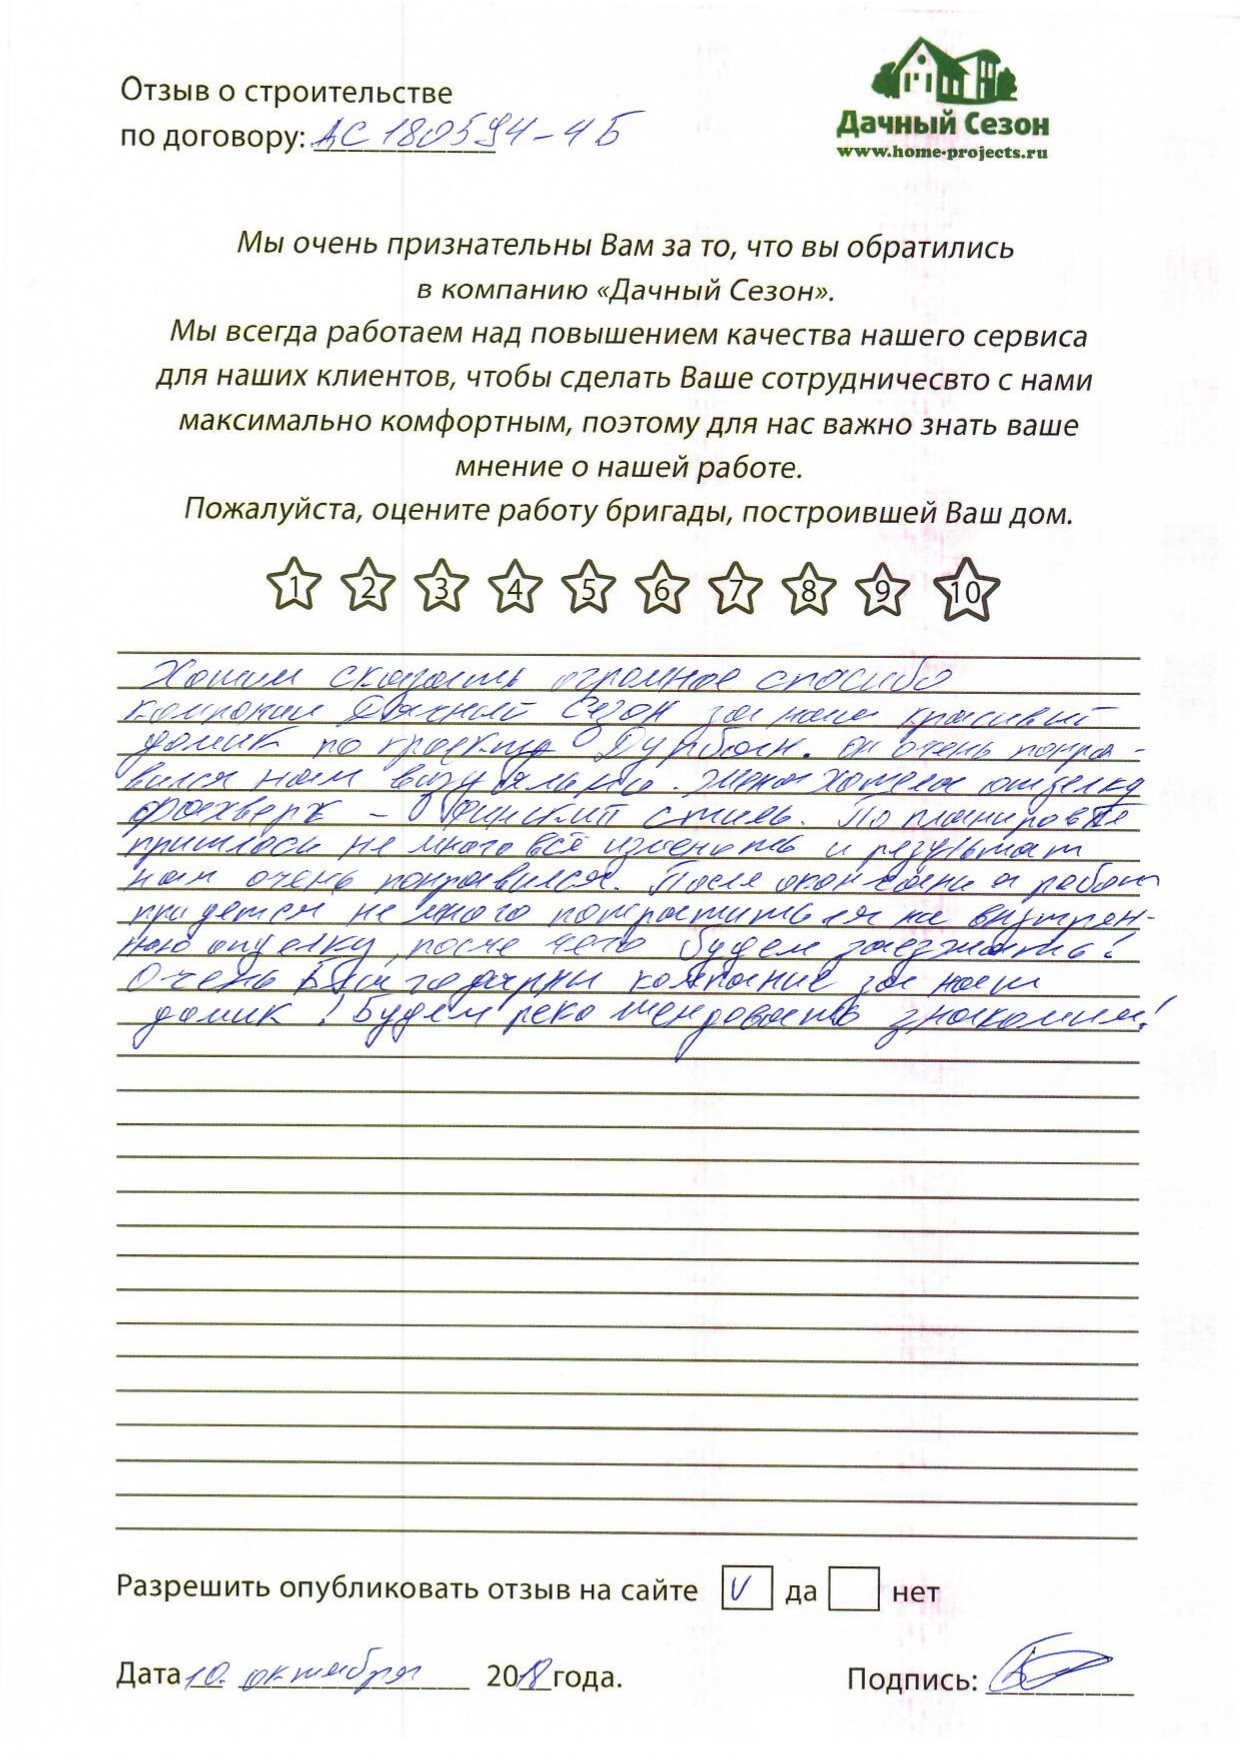 Отзыв о строительстве
по договору: ДС 180594-4Б
Дачный Сезон
www.home-projects.ru
Мы очень признательны Вам за то, что вы обратились
в компанию «Дачный Сезон».
Мы всегда работаем над повышением качества нашего сервиса
для наших клиентов, чтобы сделать Ваше сотрудничесвто с нами
максимально комфортным, поэтому для нас важно знать ваше
мнение о нашей работе.
Пожалуйста, оцените работу бригады, построившей Ваш дом.
1 2 3 4 5 6 7 8 9 10
Хотим сказать огромное спасибо
компании Дачный Сезон за наш красивый
домик по проекту Дурбан. он очень понра-
вился нам визуально. жена хотела отделку
фахверк - финский стиль. По планировке
пришлось не много всё изменить и результат
нам очень понравился. После окончания работ
придется не много потратиться на внутрен-
нюю отделку, после чего будем заезжать!
Очень Благодарны компании за наш
домик! Будем рекомендовать знакомым!
Разрешить опубликовать отзыв на сайте V да нет
Дата 10. октября 2018 года. Подпись: